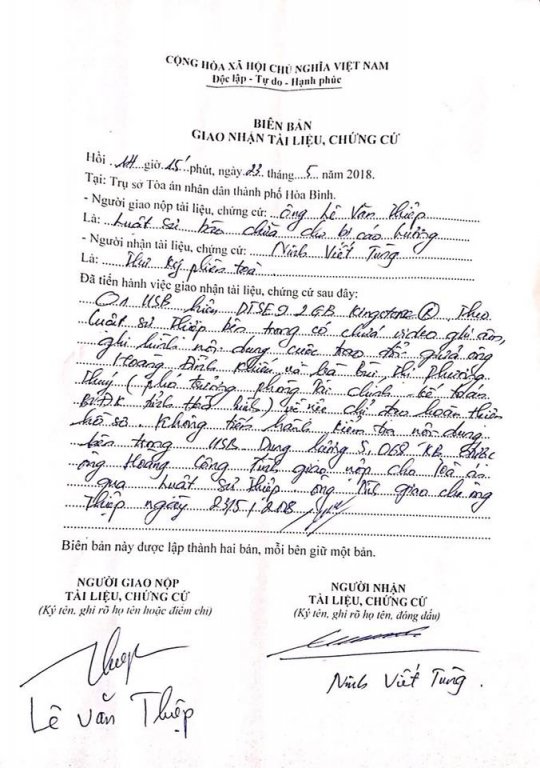 CỘNG HÒA XÃ HỘI CHỦ NGHĨA VIỆT NAM
Độc lập - Tự do - Hạnh phúc
BIÊN BẢN
GIAO NHẬN TÀI LIỆU, CHỨNG CỨ
Hồi 14 giờ 15 phút, ngày 23 tháng 5 năm 2018.
Tại: Trụ sở Tòa án nhân dân thành phố Hòa Bình.
- Người giao nộp tài liệu, chứng cứ: Ông Lê Văn Thiệp
Là: Luật sư bào chữa cho bị cáo Lương
- Người nhận tài liệu, chứng cứ: Ninh Viết Tùng
Là: Thư ký phiên toà
Đã tiến hành việc giao nhận tài liệu, chứng cứ sau đây:
01 USB hiệu DTSE9 2GB Kingston ® Theo
Luật sư Thiệp bên trong có chứa video ghi âm,
ghi hình nội dung cuộc trao đổi giữa ông
Hoàng Đình Khiếu và bà Thị Phương
Thuỷ (phó trưởng phòng Tài chính kế toán
BVĐK tỉnh Hoà Bình) về việc chỉ đạo hoàn thiện
hồ sơ. Không tiến hành kiểm tra nội dung
bên trong USB. Dung lượng 5,068 KB được
ông Hoàng Công Tình giao nộp cho Toà án
qua Luật sư Thiệp giao cho ông
Thiệp ngày 23/5/2018
Biên bản này được lập thành hai bản, mỗi bên giữ một bản.
NGƯỜI GIAO NỘP
TÀI LIỆU, CHỨNG CỨ
(Ký tên, ghi rõ họ tên hoặc điểm chỉ)
Thiệp
Lê Văn Thiệp
NGƯỜI NHẬN
TÀI LIỆU, CHỨNG CỨ
(Ký tên, ghi rõ họ tên, đóng dấu)
Ninh Viết Tùng.